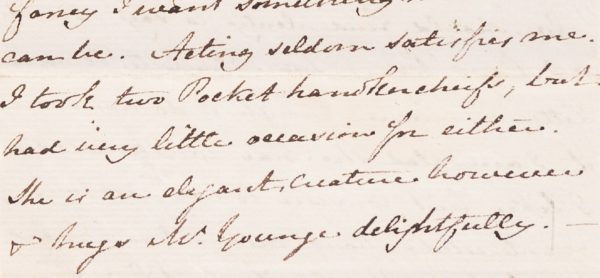 fancy I want something
can be. Acting seldom satisfies me.
I took two Pocket handkercheifs, but
had very little occasion for either.
She is an elegant creature however
& hugs Mr. Younge delightfully. —